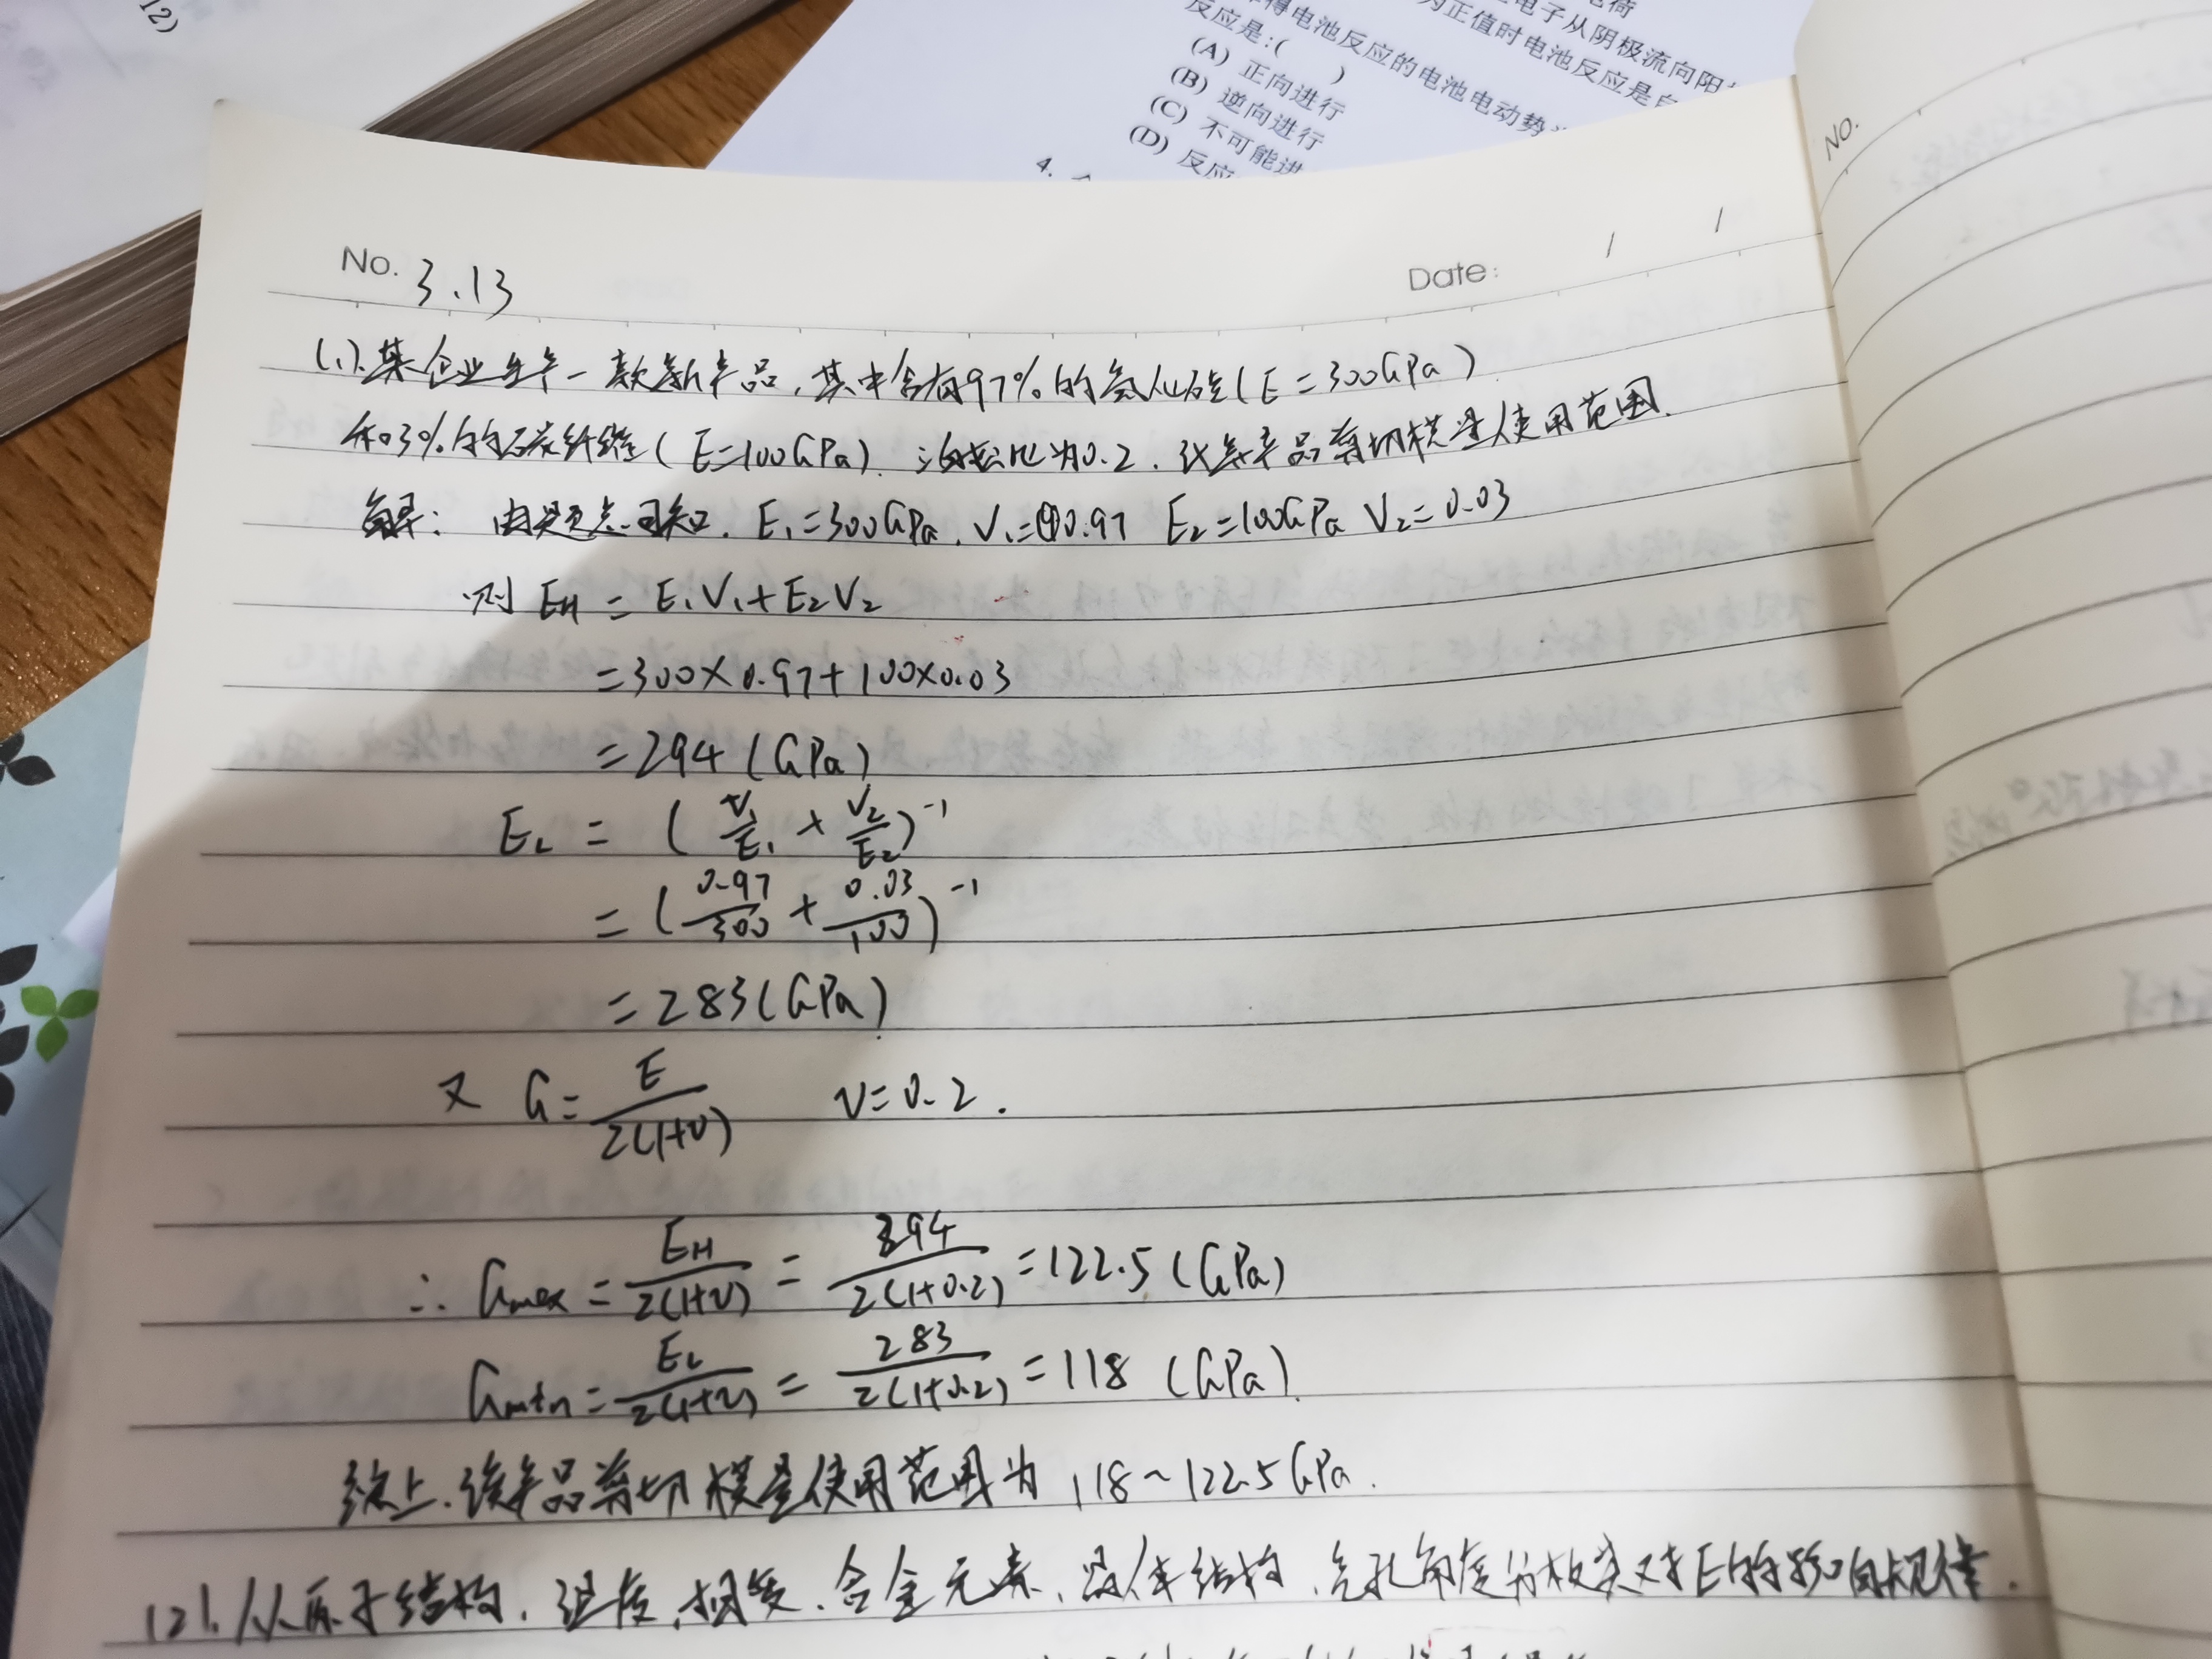 12)
电荷
电子从阴极流向阳
为正值时电池反应是自
得电池反应的电池电动势
反应是:( )
(A) 正向进行
(B) 逆向进行
(C) 不可能进
(D) 反应
4.
No. 3.13
Date: / /
No.
(1).某企业生产一款新产品,其中含有97%的氮化硅(E=300GPa)
和3%的碳纤维(E=100GPa).泊松比为0.2.试求产品剪切模量使用范围.
解: 由题意可知. E₁=300GPa. V₁=0.97 E₂=100GPa V₂=0.03
则 E_H = E₁V₁+E₂V₂
=300×0.97+100×0.03
=294(GPa)
E_L = (V₁/E₁ + V₂/E₂)⁻¹
= (0.97/300 + 0.03/100)⁻¹
=283(GPa)
又 G=E/2(1+ν) ν=0.2.
∴ Gmax = E_H/2(1+ν) = 294/2(1+0.2) =122.5(GPa)
Gmin = E_L/2(1+ν) = 283/2(1+0.2) =118 (GPa).
综上.该产品剪切模量使用范围为 118~122.5GPa.
(2).从原子结构,温度,相变,合金元素,晶体结构,气孔角度分析其对E的影响规律.